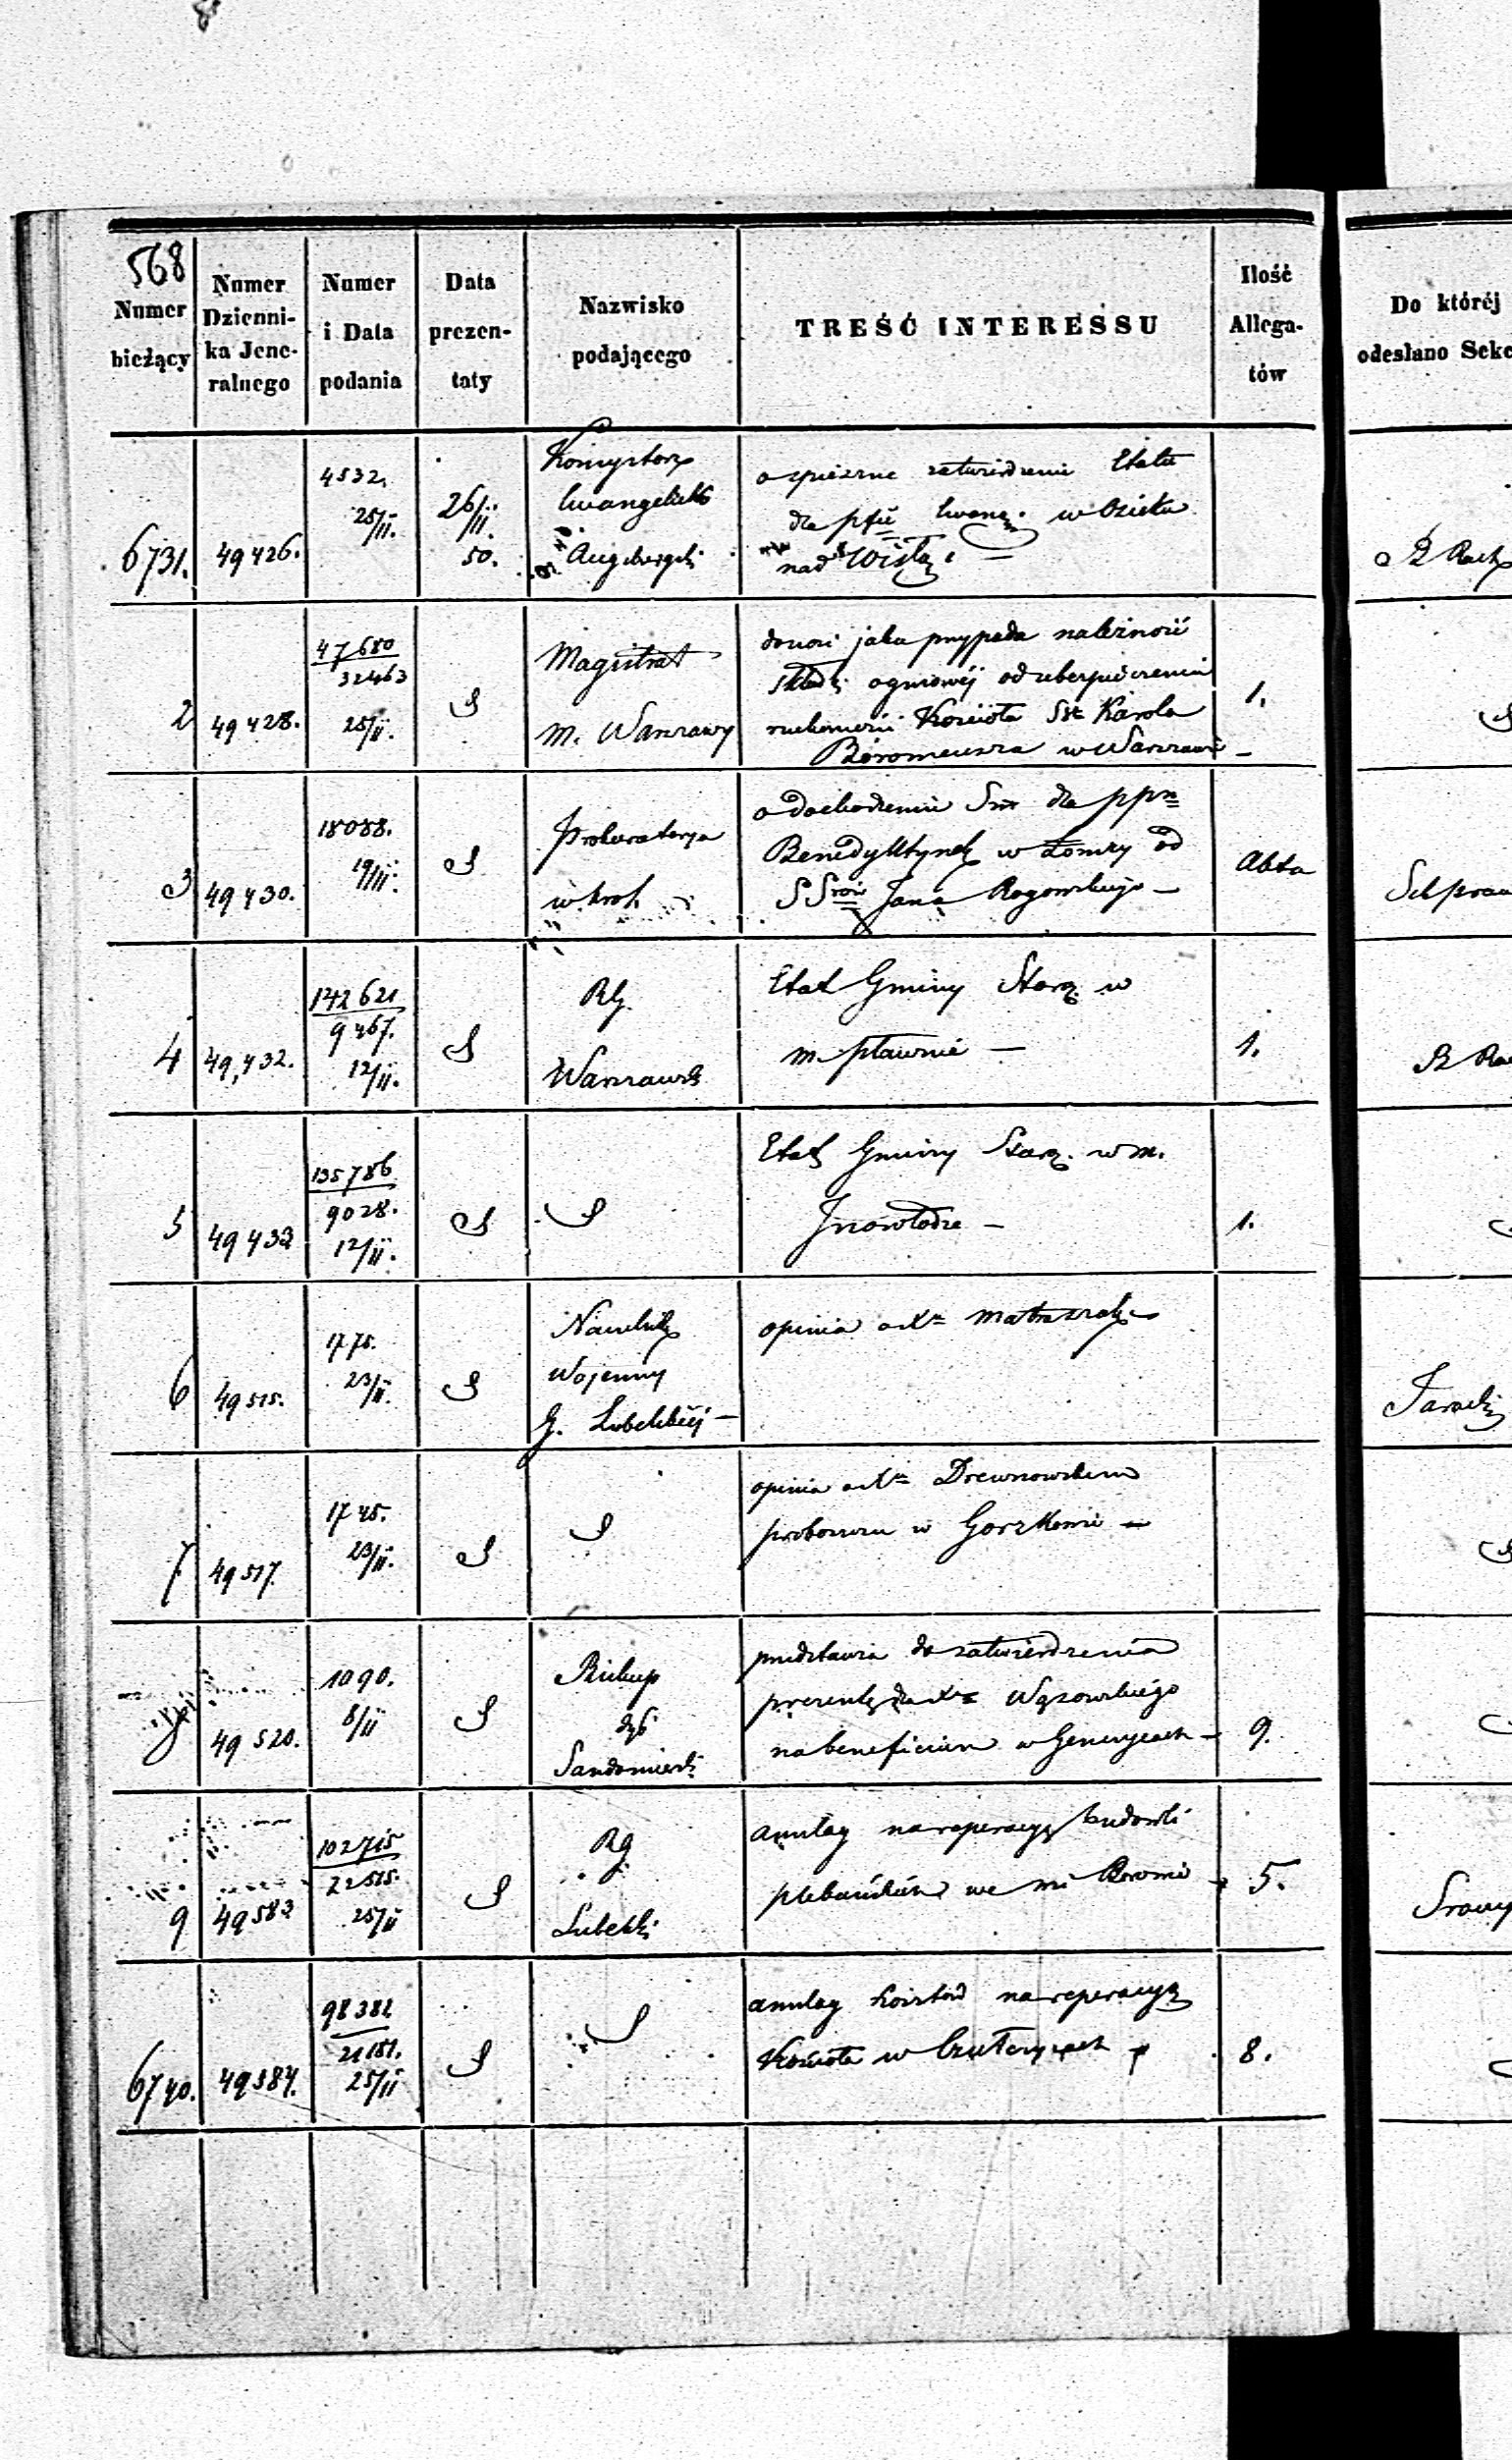 568
Numer bieżący
Numer Dzienni-ka Jene-ralnego
Numer i Data podania
Data prezen-taty
Nazwisko podającego
TREŚĆ INTERESSU
Ilość Allega-tów
Do któréj
odesłano Sekc
6731. 49426. 4532. 25/II. 26/II. 50.
Konsystorz
Ewangelicko
Augsburgski
o spieszne zatwierdzenie Etatu
dla pfii Ewang. w Osieku
nad Wisłą
2 49428. 47680
32463
25/II.
Magistrat
m. Warszawy
donosi jaka przypada należność
Składki ogniowéj od ubezpieczenia
ruchomości Kościoła Sgo Karola
Boromeusza w Warszawie
1.
3 49430. 18088.
19/III.
Prokuratorya
w Krol.
o dochodzeniu Sm dla ppn
Benedyktynek w Łomży od
SSrów Jana Rogowskiego
Akta
4 49,432. 142621
9467.
12/II.
RG.
Warszawski
Etat Gminy Staroz. w
m. Pławnie
1.
5 49433 135786
9028.
12/II.
Etat Gminy Staroz. w m.
Inowłodzu
1.
6 49515. 1775.
23/II.
Naczelnik
Wojenny
G. Lubelskiej
opinia o Xu Matraszek
7 49517. 1745.
23/II.
opinia o Xu Drewnowskim
proboszczu w Gorzkowie
8 49520. 1090.
8/II
Biskup
dyć
Sandomierski
przedstawia do zatwierdzenia
prezentę dla Xa Wąsowskiego
na beneficium w Gieniczach
9.
9 49583 102715
22515.
25/II
RG
Lubelski
anszlag na reperacyę budowli
plebańskich we wsi
5.
6740. 49584. 98382
21181.
25/II
anszlag kosztów na reperacyę
Kościoła w Czułczycach
8.